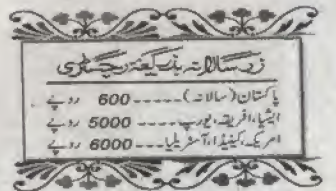 زر سالانہ بذریعہ رجسٹری
پاکستان (سالانہ) ----- 600 روپے
ایشیا، افریقہ، یورپ ----- 5000 روپے
امریکہ، کینیڈا، آسٹریلیا ----- 6000 روپے